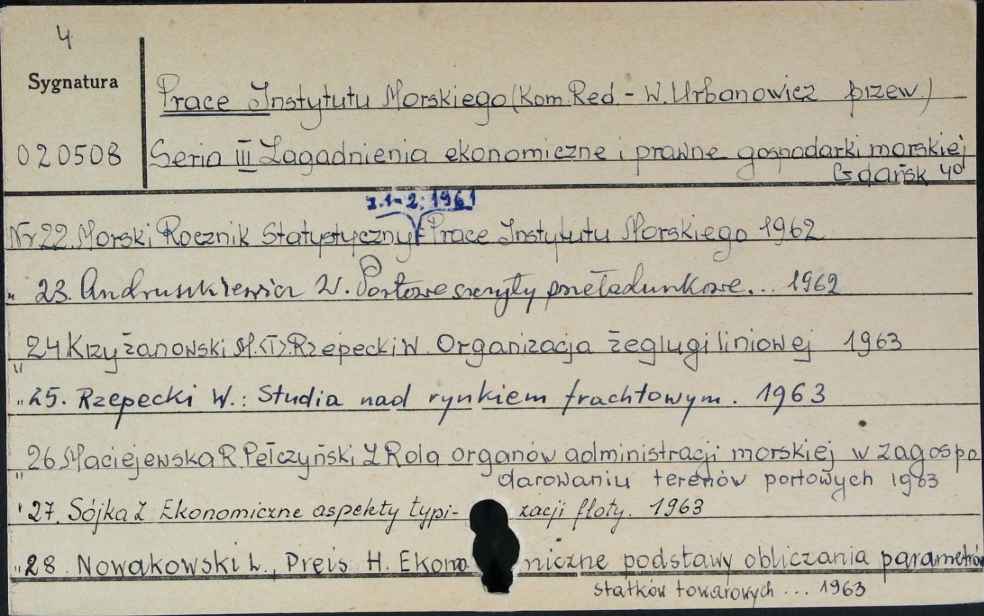 4
Sygnatura
Prace Instytutu Morskiego (Kom. Red - W. Urbanowicz przew.)
020508
Seria III Zagadnienia ekonomiczne i prawne gospodarki morskiej
Gdańsk 40
z.1-2: 1961
Nr 22. Morski Rocznik Statystyczny Prace Instytutu Morskiego 1962
" 23. Andruszkiewicz W. Portowe szczyty przeładunkowe... 1962
" 24 Krzyżanowski M. (I). Rzepecki W. Organizacja żeglugi liniowej 1963
" 25. Rzepecki W.: Studia nad rynkiem frachtowym. 1963
" 26 Maciejewska R. Pełczyński Z Rola organów administracji morskiej w zagospo
darowaniu terenów portowych 1963
" 27. Sójka Z Ekonomiczne aspekty typi- zacji floty. 1963
" 28. Nowakowski L., Preis H. Ekono miczne podstawy obliczania parametrów
statków towarowych ... 1963